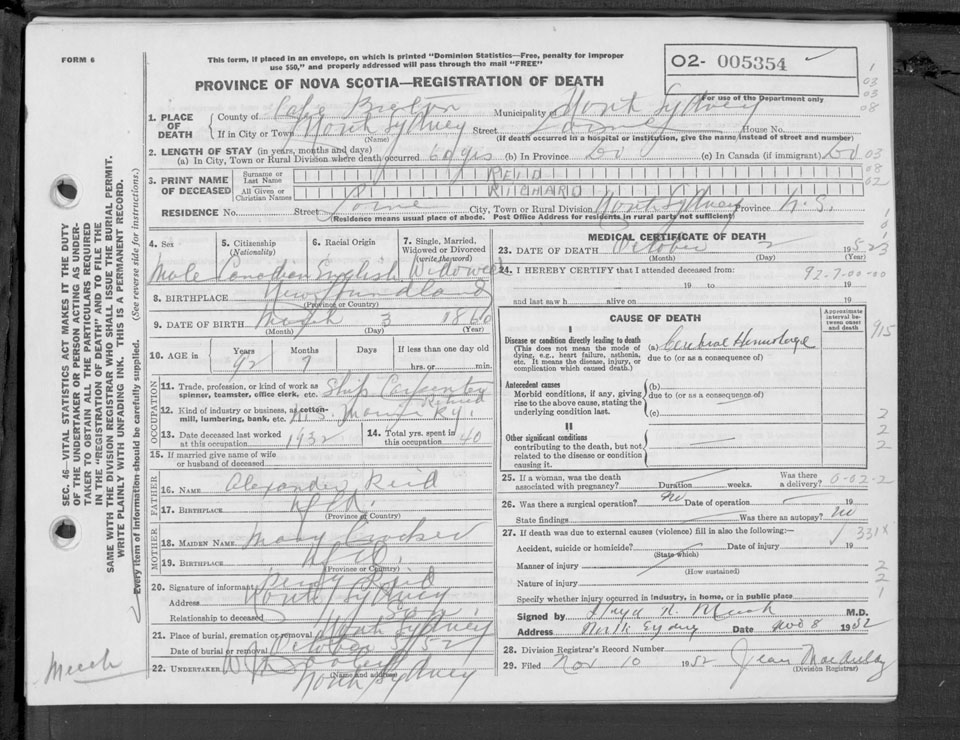 FORM 6
This form, if placed in an envelope, on which is printed "Dominion Statistics—Free, penalty for improper
use $50," and properly addressed will pass through the mail "FREE"
PROVINCE OF NOVA SCOTIA—REGISTRATION OF DEATH
O2- 005354
For use of the Department only
1. PLACE OF DEATH
County of Cape Breton Municipality of North Sydney
If in City or Town North Sydney Street House No.
(Name) (If death occurred in a hospital or institution, give the name instead of street and number)
2. LENGTH OF STAY (in years, months and days)
(a) In City, Town or Rural Division where death occurred 60 yrs (b) In Province Do (c) In Canada (if immigrant) Do
3. PRINT NAME OF DECEASED
Surname or Last Name REID
All Given or Christian Names RICHARD
RESIDENCE No. Street City, Town or Rural Division North Sydney Province N.S.
(Residence means usual place of abode. Post Office Address for residents in rural party not sufficient)
4. Sex
5. Citizenship (Nationality)
6. Racial Origin
7. Single, Married, Widowed or Divorced (write the word)
Male Canadian English Widowed
8. BIRTHPLACE Newfoundland
(Province or Country)
9. DATE OF BIRTH March 3 1860
(Month) (Day) (Year)
10. AGE in Years Months Days If less than one day old
92 7 hrs. or min.
OCCUPATION
11. Trade, profession, or kind of work as spinner, teamster, office clerk, etc. Ship Carpenter
Retired
12. Kind of industry or business, as cotton-mill, lumbering, bank, etc. Ry.
13. Date deceased last worked at this occupation 1932
14. Total yrs. spent in this occupation 40
15. If married give name of wife or husband of deceased
FATHER
16. NAME Alexander Reid
17. BIRTHPLACE Nfld.
(Province or Country)
MOTHER
18. MAIDEN NAME Mary
19. BIRTHPLACE Nfld.
(Province or Country)
20. Signature of informant Percy Reid
Address North Sydney
Relationship to deceased Son
21. Place of burial, cremation or removal North Sydney
Date of burial or removal October 52
22. UNDERTAKER
(Name and address)
North Sydney
MEDICAL CERTIFICATE OF DEATH
23. DATE OF DEATH October 2 195
(Month) (Day) (Year)
24. I HEREBY CERTIFY that I attended deceased from:
92-7-00-00
19 to 19
and last saw h alive on 19
CAUSE OF DEATH
Approximate interval between onset and death
I
Disease or condition directly leading to death
(This does not mean the mode of dying, e.g., heart failure, asthenia, etc. It means the disease, injury, or complication which caused death.)
(a) Cerebral Hemorrhage
due to (or as a consequence of)
Antecedent causes
Morbid conditions, if any, giving rise to the above cause, stating the underlying condition last.
(b)
due to (or as a consequence of)
(c)
II
Other significant conditions
contributing to the death, but not related to the disease or condition causing it.
25. If a woman, was the death associated with pregnancy? Duration weeks. Was there a delivery?
26. Was there a surgical operation? No Date of operation 19
State findings Was there an autopsy? No
27. If death was due to external causes (violence) fill in also the following:—
Accident, suicide or homicide? Date of injury 19
(State which)
Manner of injury
(How sustained)
Nature of injury
Specify whether injury occurred in industry, in home, or in public place
Signed by M.D.
Address North Sydney Date Nov 8 1952
28. Division Registrar's Record Number
29. Filed Nov 10 1952 Jean
(Division Registrar)
915
331X
SEC. 46—VITAL STATISTICS ACT MAKES IT THE DUTY
OF THE UNDERTAKER OR PERSON ACTING AS UNDERTAKER
TO OBTAIN ALL THE PARTICULARS REQUIRED
IN THE "REGISTRATION OF DEATH" AND TO FILE THE
SAME WITH THE DIVISION REGISTRAR WHO SHALL ISSUE THE BURIAL PERMIT.
WRITE PLAINLY WITH UNFADING INK. THIS IS A PERMANENT RECORD.
Every item of information should be carefully supplied. (See reverse side for instructions.)